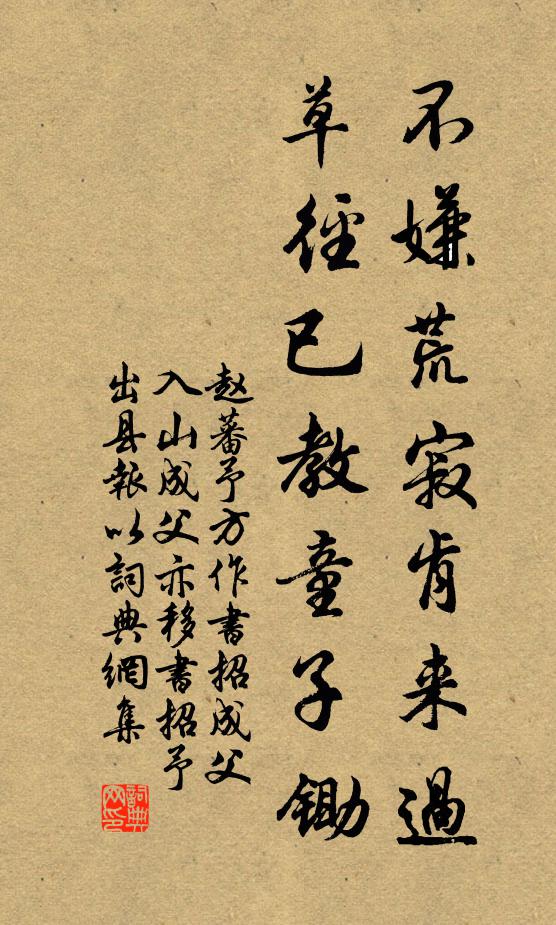 不嫌荒寂肯来過
草徑已教童子鋤
赵蕃予方作書招成父
入山成父亦移書招予
出县報以詞典網集
詞典网印